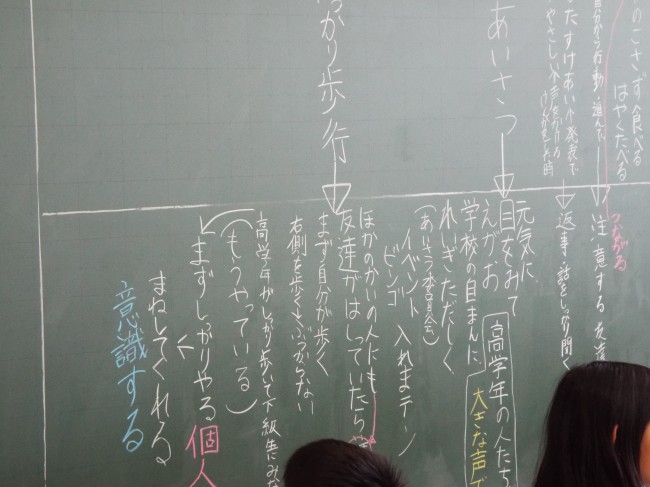 のこさず食べる
はやくたべる
自分から行動
たすけあい 発表
つながる
注意する
返事、話をしっかり聞く
あいさつ
元気に
目をみて
えがお
学校の自まんに
れいぎただしく
(あいさつ委員会)
イベント
ビンゴ
高学年の人たち
大きな声で
かり歩行
ほかのかいの人にも
友達がはしっていたら
まず自分が歩く
右側を歩く
ぶつからない
高学年がしっかり歩いて下級生
(もうやっている)
まずしっかりやる
個人
まねしてくれる
意識する